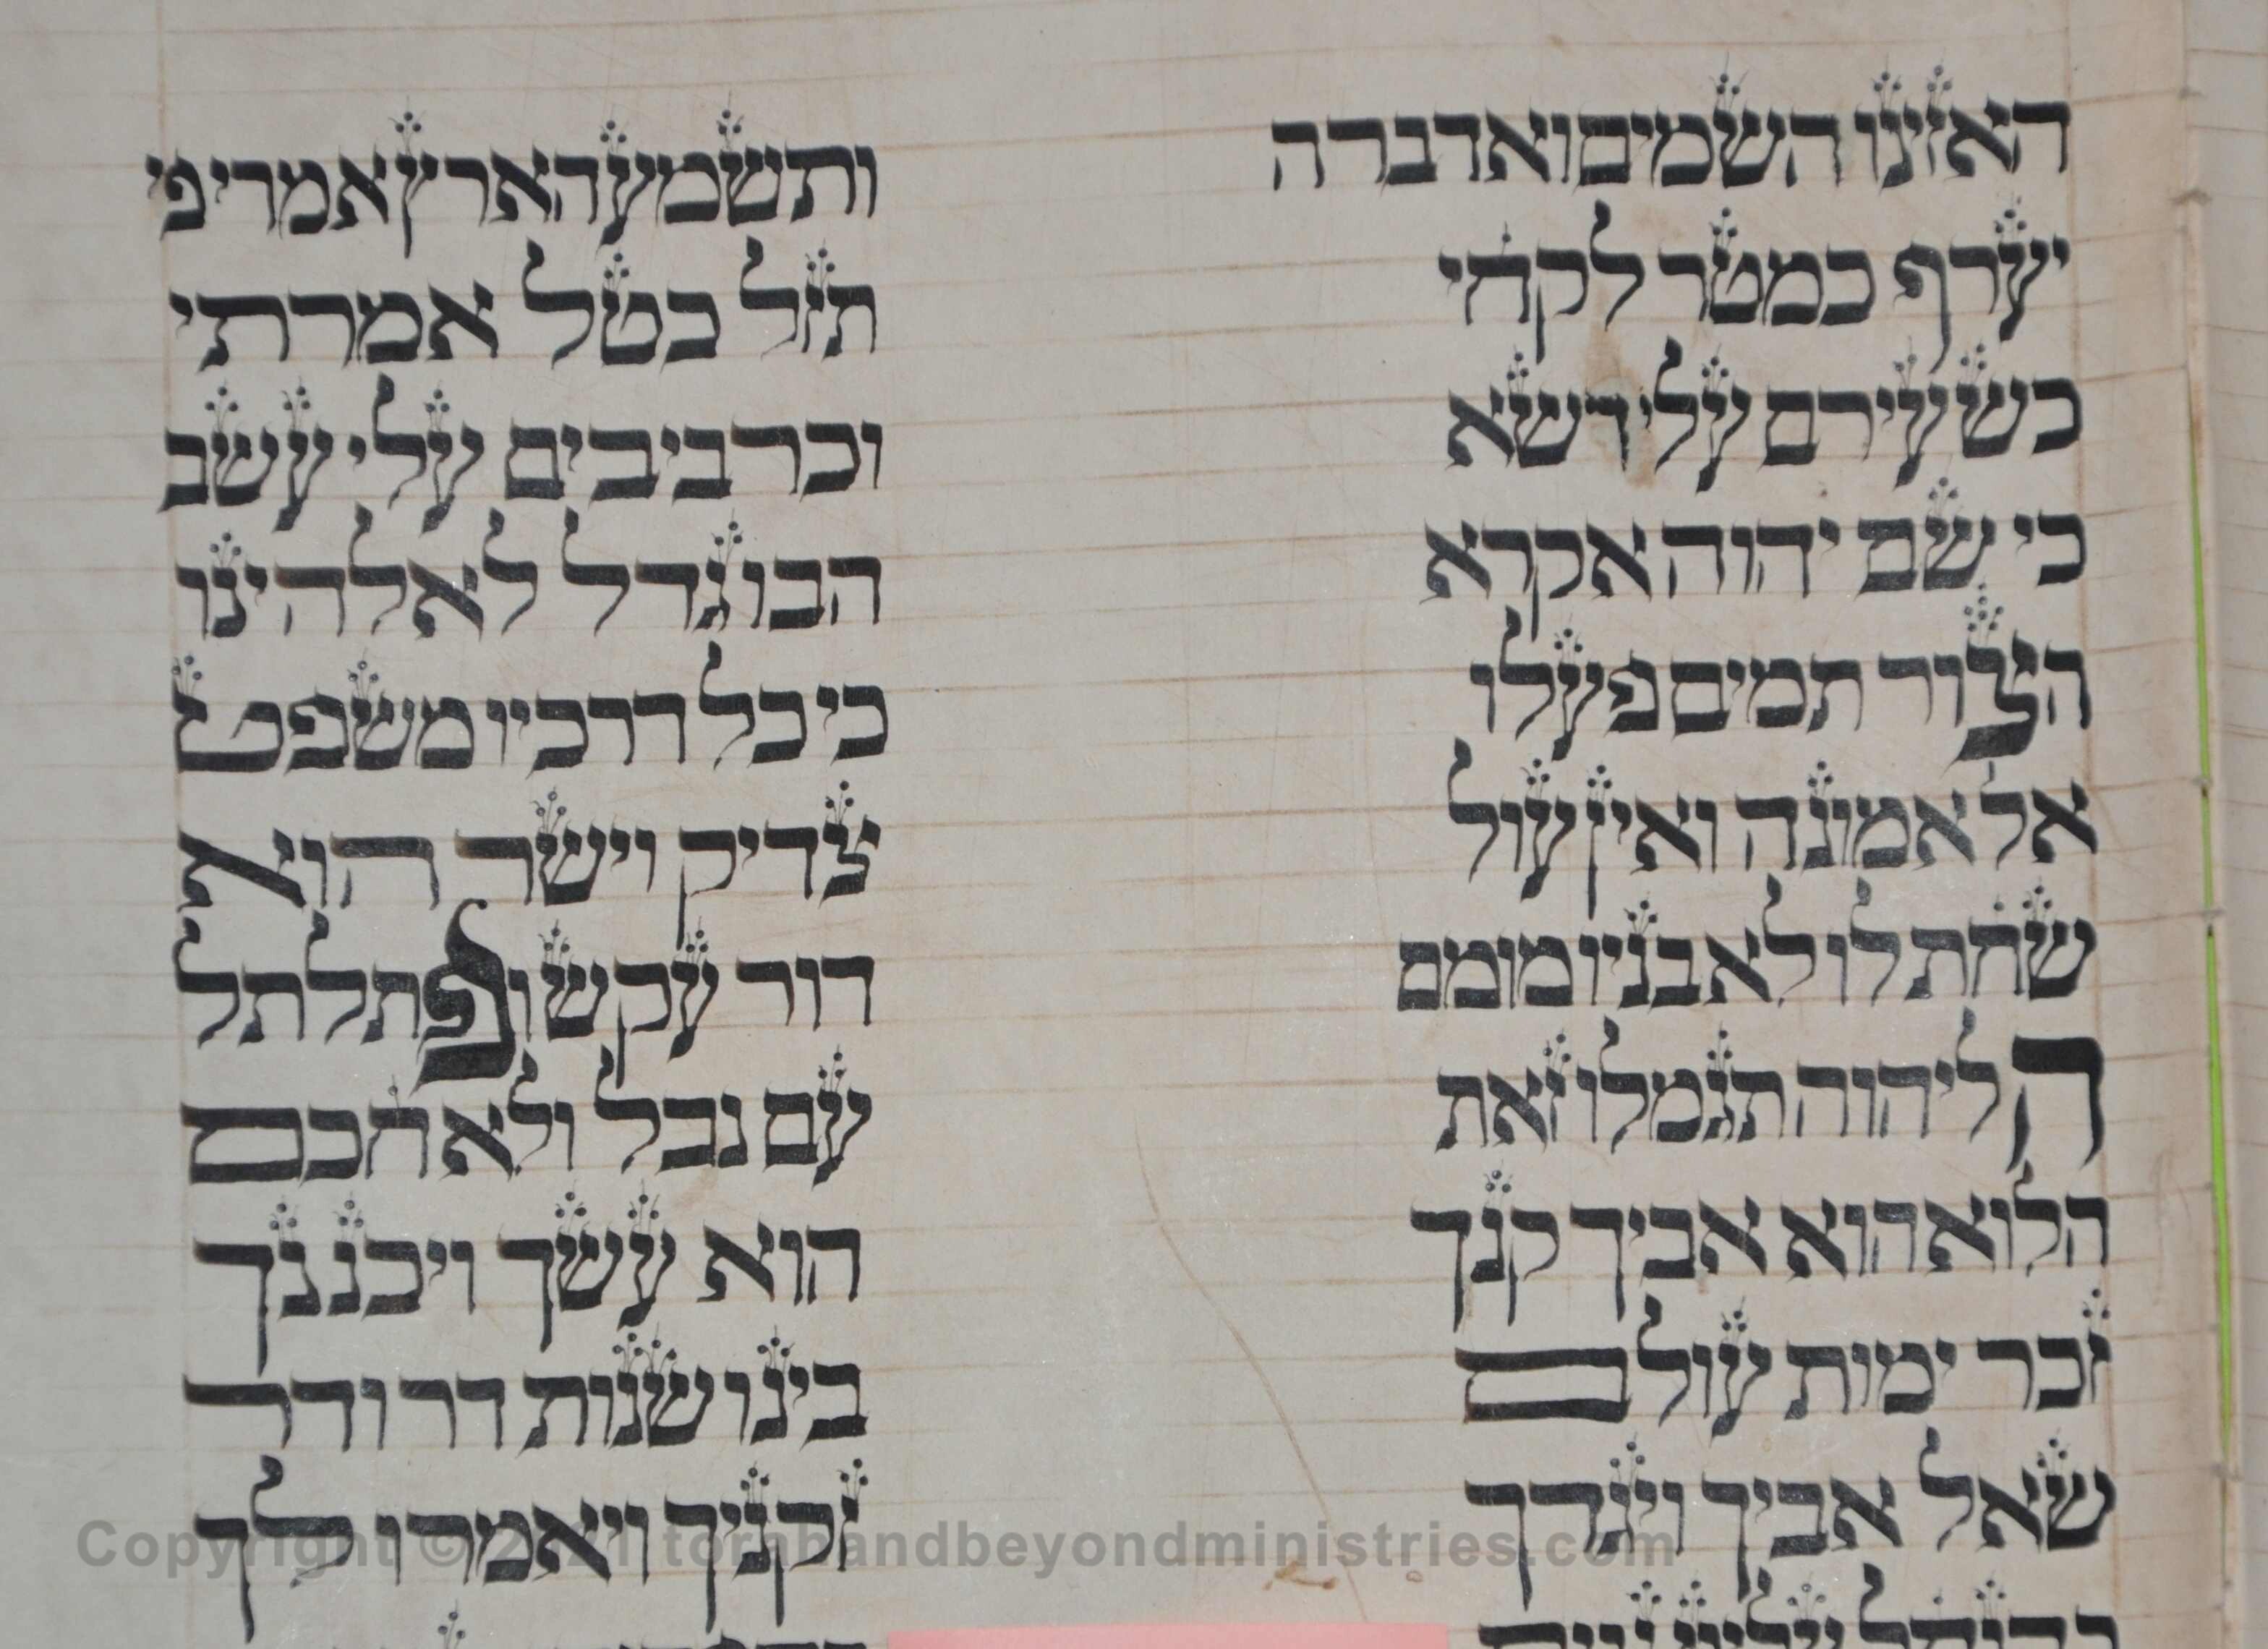 האזינו השמים ואדברה ותשמע הארץ אמרי פי
יערף כמטר לקחי תזל כטל אמרתי
כשעירם עלי דשא וכרביבים עלי עשב
כי שם יהוה אקרא הבו גדל לאלהינו
הצור תמים פעלו כי כל דרכיו משפט
אל אמונה ואין עול צדיק וישר הוא
שחת לו לא בניו מומם דור עקש ופתלתל
ה ליהוה תגמלו זאת עם נבל ולא חכם
הלוא הוא אביך קנך הוא עשך ויכננך
זכר ימות עולם בינו שנות דר ודר
שאל אביך ויגדך זקניך ויאמרו לך
Copyright © 2021 torahandbeyondministries.com